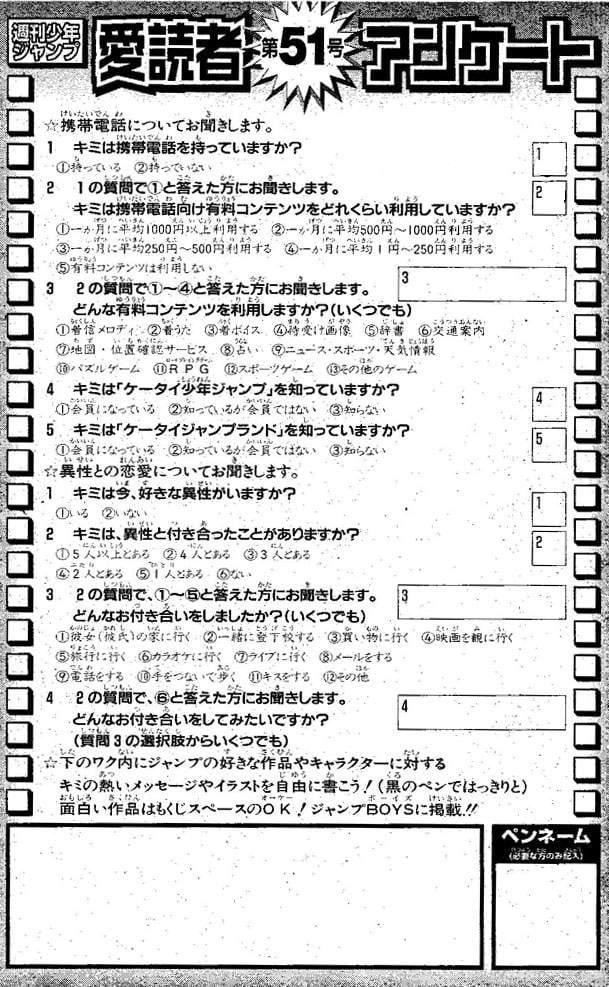 週刊少年
ジャンプ
愛読者
第51号
アンケート
☆携帯電話についてお聞きします。
1 キミは携帯電話を持っていますか?
①持っている ②持っていない
1
2 1の質問で①と答えた方にお聞きします。
キミは携帯電話向け有料コンテンツをどれくらい利用していますか?
2
①一か月に平均1000円以上利用する ②一か月に平均500円~1000円利用する
③一か月に平均250円~500円利用する ④一か月に平均1円~250円利用する
⑤有料コンテンツは利用しない
3 2の質問で①~④と答えた方にお聞きします。
どんな有料コンテンツを利用しますか?(いくつでも)
3
①着信メロディ ②着うた ③着ボイス ④待受け画像 ⑤辞書 ⑥交通案内
⑦地図・位置確認サービス ⑧占い ⑨ニュース・スポーツ・天気情報
⑩パズルゲーム ⑪RPG ⑫スポーツゲーム ⑬その他のゲーム
4 キミは「ケータイ少年ジャンプ」を知っていますか?
①会員になっている ②知っているが会員ではない ③知らない
4
5 キミは「ケータイジャンプランド」を知っていますか?
①会員になっている ②知っているが会員ではない ③知らない
5
☆異性との恋愛についてお聞きします。
1 キミは今、好きな異性がいますか?
①いる ②いない
1
2 キミは、異性と付き合ったことがありますか?
①5人以上とある ②4人とある ③3人とある
④2人とある ⑤1人とある ⑥ない
2
3 2の質問で、①~⑤と答えた方にお聞きします。
どんなお付き合いをしましたか?(いくつでも)
3
①彼女(彼氏)の家に行く ②一緒に登下校する ③買い物に行く ④映画を観に行く
⑤旅行に行く ⑥カラオケに行く ⑦ライブに行く ⑧メールをする
⑨電話をする ⑩手をつないで歩く ⑪キスをする ⑫その他
4 2の質問で、⑥と答えた方にお聞きします。
どんなお付き合いをしてみたいですか?
(質問3の選択肢からいくつでも)
4
☆下のワク内にジャンプの好きな作品やキャラクターに対する
キミの熱いメッセージやイラストを自由に書こう!(黒のペンではっきりと)
面白い作品はもくじスペースのOK!ジャンプBOYSに掲載!!
ペンネーム
(必要な方のみ記入)